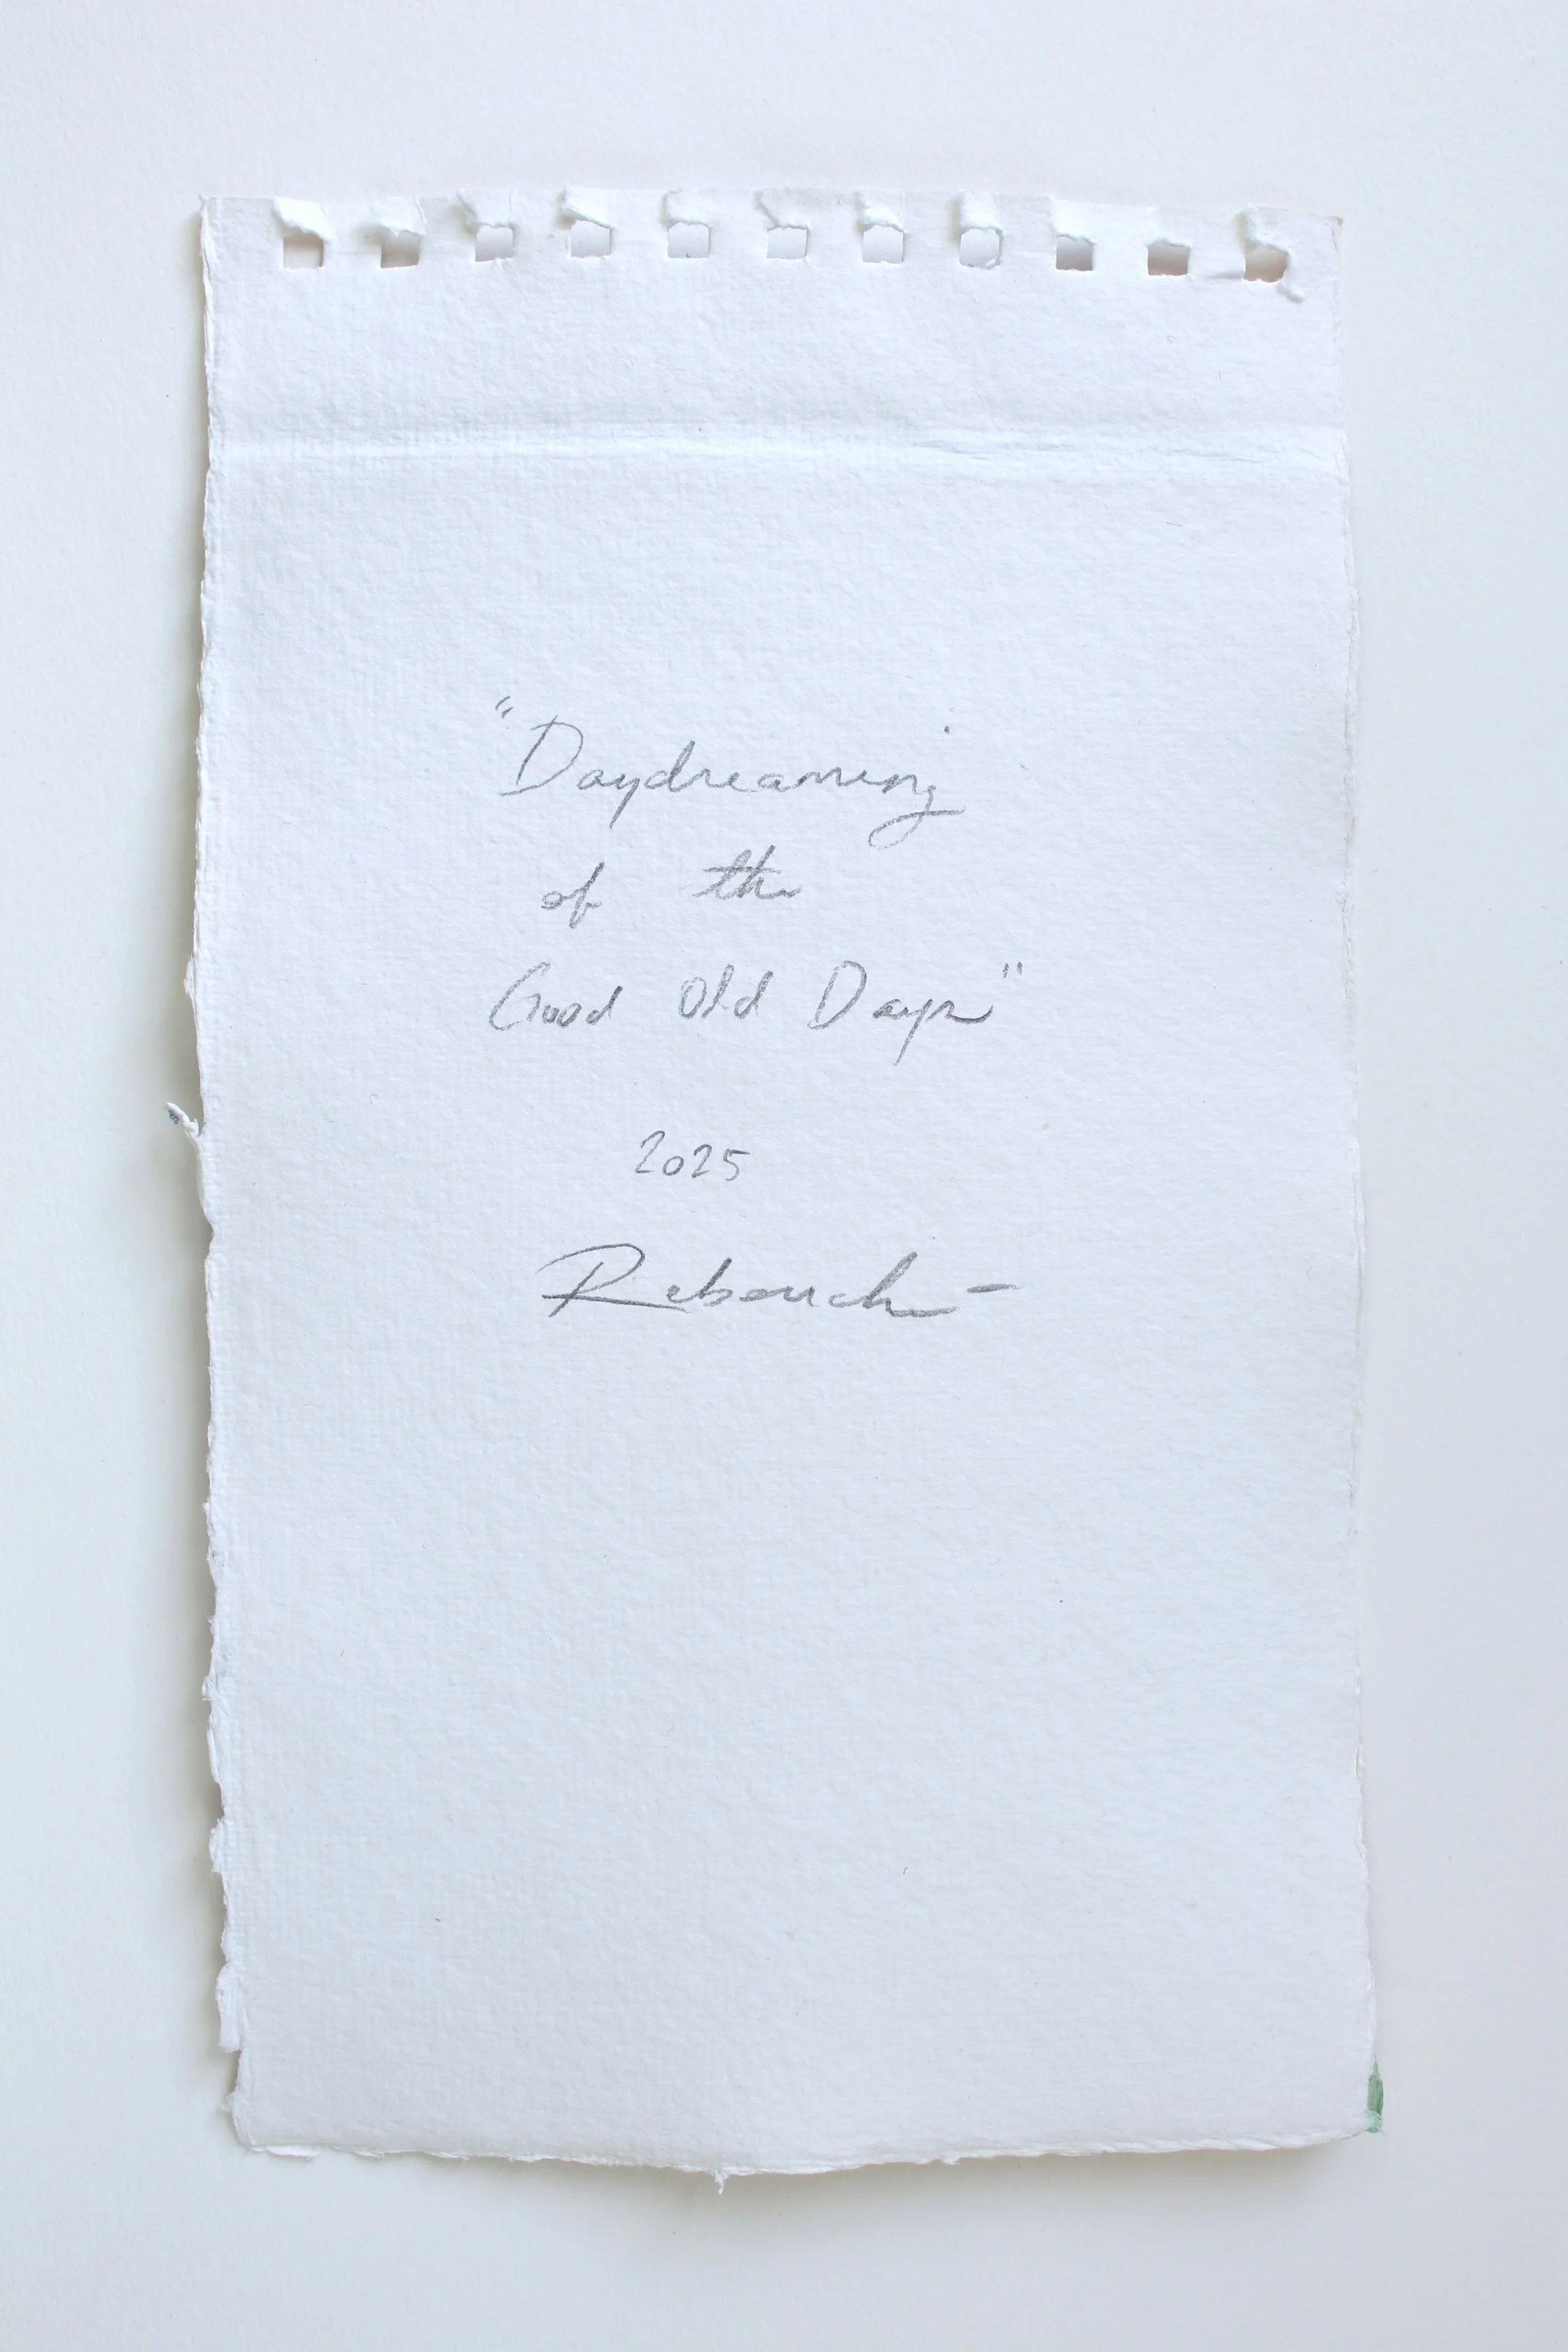 "Daydreaming
of the
Good Old Days"
2025
Rebouche